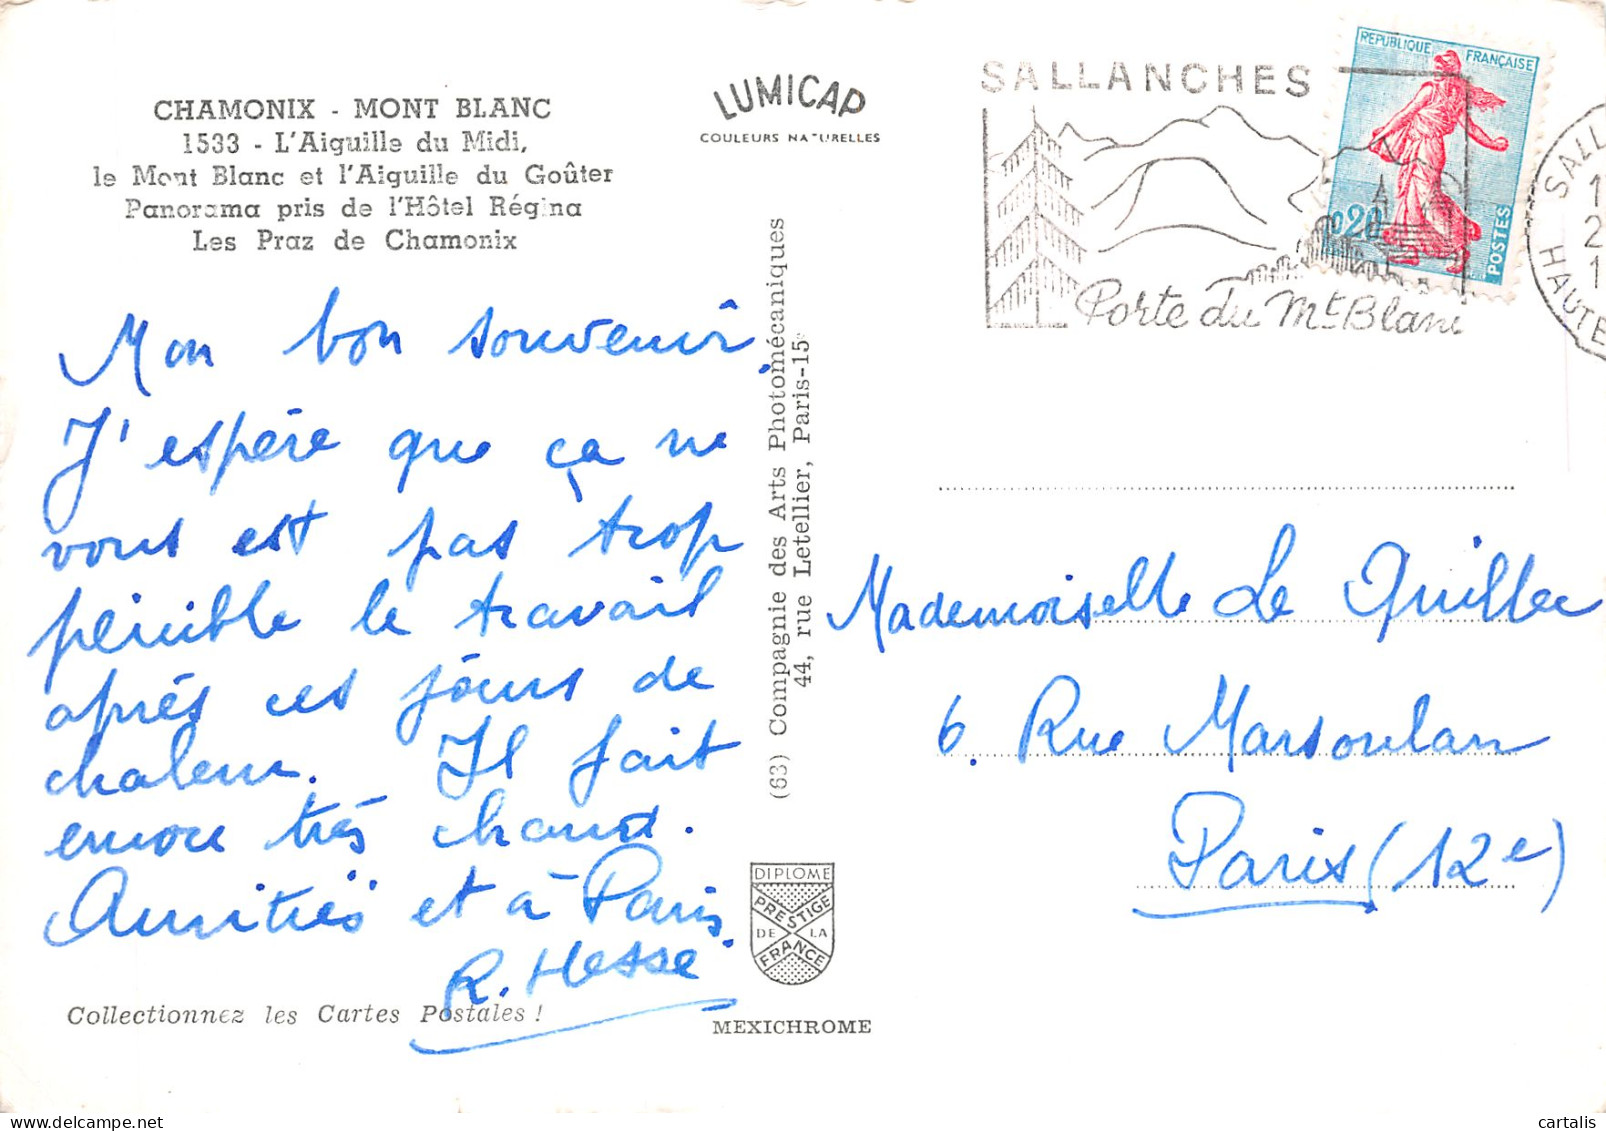 CHAMONIX - MONT BLANC
1533 - L'Aiguille du Midi,
le Mont Blanc et l'Aiguille du Goûter
Panorama pris de l'Hôtel Régina
Les Praz de Chamonix
LUMICAP
COULEURS NATURELLES
SALLANCHES
Porte du Mt Blanc
REPUBLIQUE FRANÇAISE
0,20
POSTES
SALL
HAUTE
Mon bon souvenir.
J'espère que ça ne
vous est pas trop
pénible le travail
après ces jours de
chaleur. Il fait
encore très chaud.
Amitiés et à Paris
R. Hesse
(63) Compagnie des Arts Photomécaniques
44, rue Letellier, Paris-15e
Mademoiselle Le Quillec
6. Rue Marsoulan
Paris (12e)
DIPLOME
PRESTIGE
DE LA
FRANCE
Collectionnez les Cartes Postales !
MEXICHROME
cartalis
www.delcampe.net